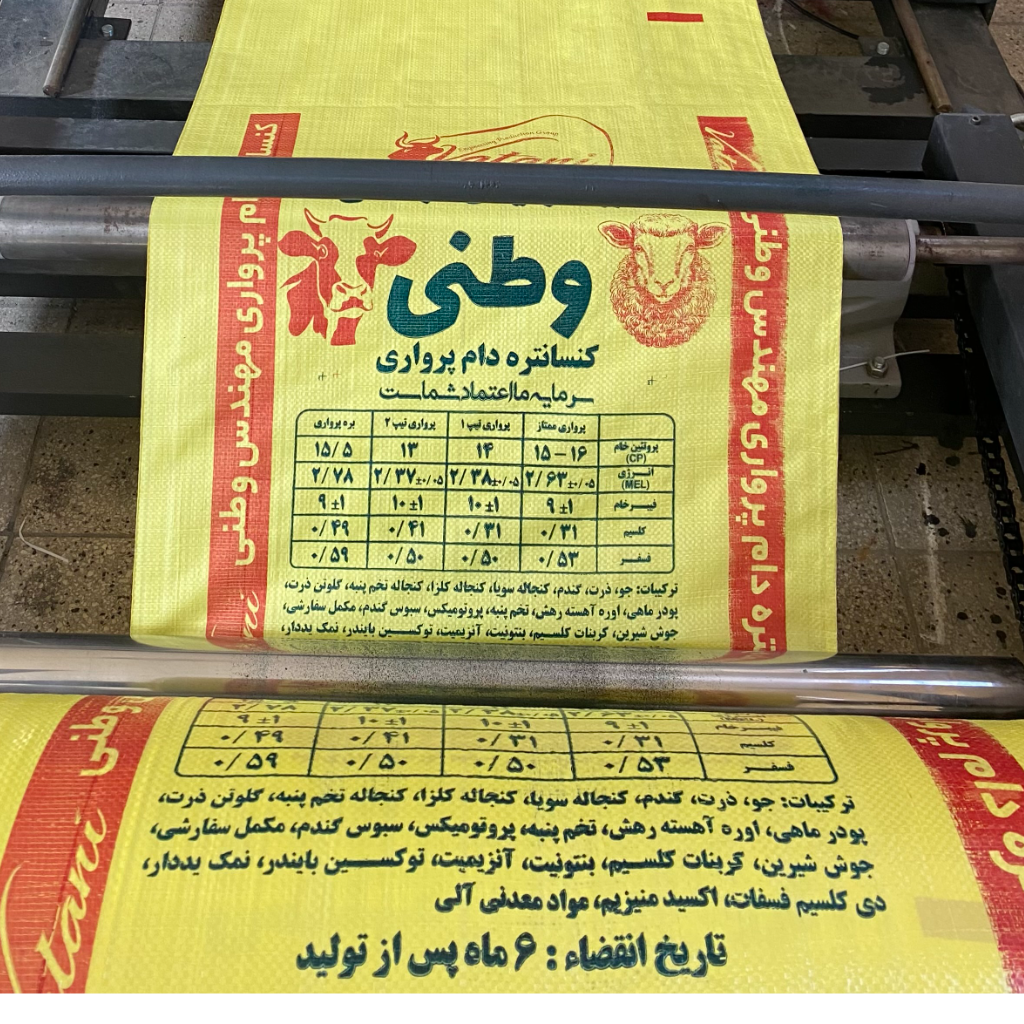 Engineering Production Group
Vatani
وطنی
کنسانتره دام پرواری
سرمایه ما اعتماد شماست
پرواری ممتاز پرواری تیپ ۱ پرواری تیپ ۲ بره پرواری
پروتئین خام (CP) ۱۵ – ۱۶ ۱۴ ۱۳ ۱۵/۵
انرژی (MEL) ۲/۶۳±۰/۰۵ ۲/۳۸±۰/۰۵ ۲/۳۷±۰/۰۵ ۲/۷۸
فیبر خام ۹±۱ ۱۰±۱ ۱۰±۱ ۹±۱
کلسیم ۰/۳۱ ۰/۳۱ ۰/۴۱ ۰/۴۹
فسفر ۰/۵۳ ۰/۵۰ ۰/۵۰ ۰/۵۹
ترکیبات: جو، ذرت، گندم، کنجاله سویا، کنجاله کلزا، کنجاله تخم پنبه، گلوتن ذرت،
پودر ماهی، اوره آهسته رهش، تخم پنبه، پروتومیکس، سبوس گندم، مکمل سفارشی،
جوش شیرین، کربنات کلسیم، بنتونیت، آنزیمیت، توکسین بایندر، نمک یددار،
پرواری مهندس وطنی
تره دام پرواری مهندس وطنی
فیبر خام ۹±۱ ۱۰±۱ ۱۰±۱ ۹±۱
کلسیم ۰/۳۱ ۰/۳۱ ۰/۴۱ ۰/۴۹
فسفر ۰/۵۳ ۰/۵۰ ۰/۵۰ ۰/۵۹
ترکیبات: جو، ذرت، گندم، کنجاله سویا، کنجاله کلزا، کنجاله تخم پنبه، گلوتن ذرت،
پودر ماهی، اوره آهسته رهش، تخم پنبه، پروتومیکس، سبوس گندم، مکمل سفارشی،
جوش شیرین، کربنات کلسیم، بنتونیت، آنزیمیت، توکسین بایندر، نمک یددار،
دی کلسیم فسفات، اکسید منیزیم، مواد معدنی آلی
تاریخ انقضاء : ۶ ماه پس از تولید
وطنی
tani